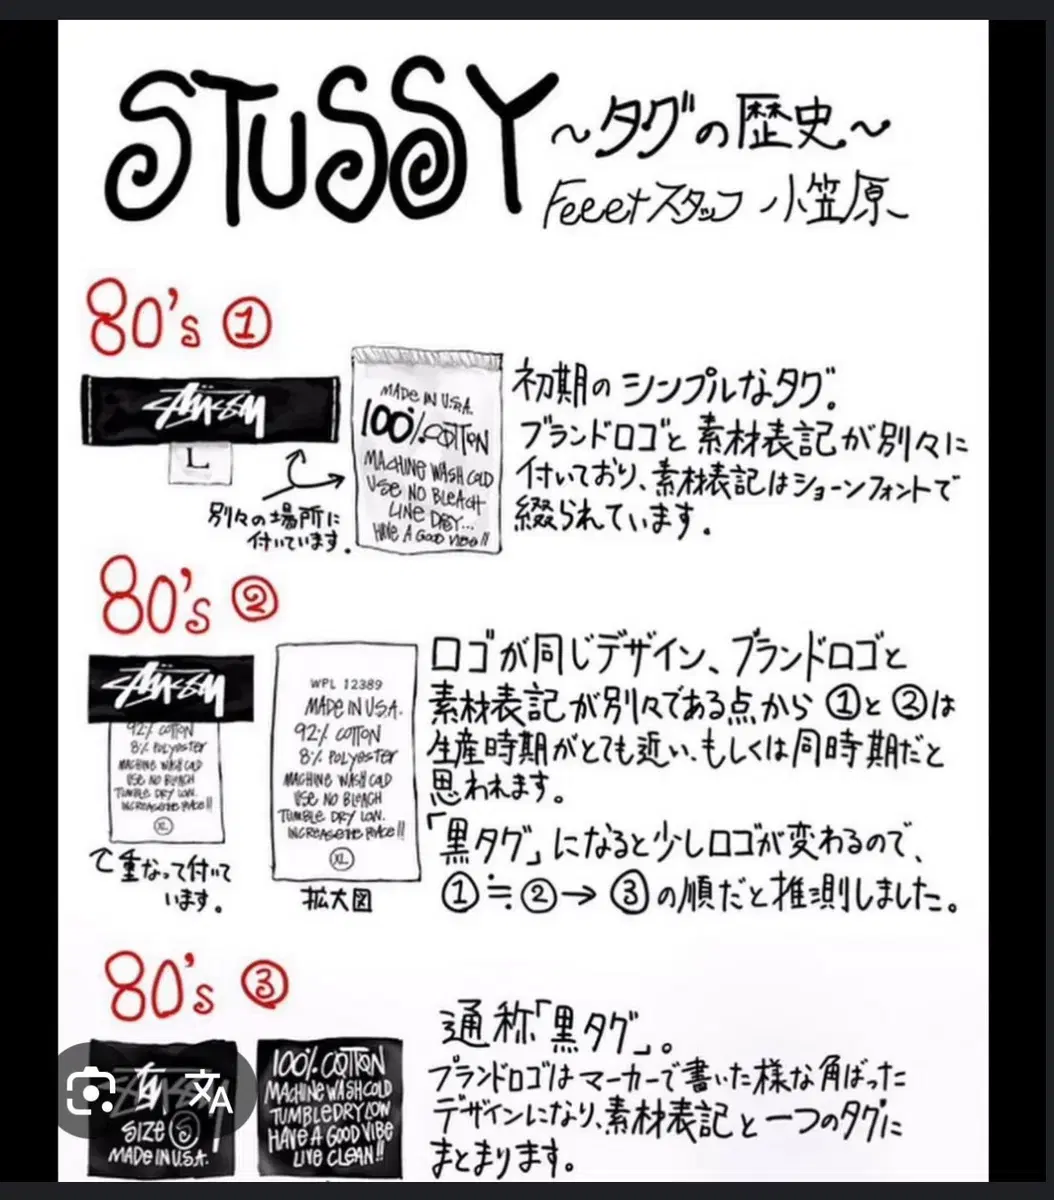 STUSSY ～タグの歴史～
Feeetスタッフ 小笠原
80's ①
STÜSSY
L
別々の場所に
付いています。
MADE IN U.S.A.
100% COTTON
MACHINE WASH COLD
USE NO BLEACH
LINE DRY...
HAVE A GOOD VIBE!!
初期のシンプルなタグ。
ブランドロゴと素材表記が別々に
付いており、素材表記はショーンフォントで
綴られています。
80's ②
STÜSSY
92% COTTON
8% POLYESTER
MACHINE WASH COLD
USE NO BLEACH
TUMBLE DRY LOW.
INCREASE THE PEACE!!
XL
重なって付いて
います。
WPL 12389
MADE IN U.S.A.
92% COTTON
8% POLYESTER
MACHINE WASH COLD
USE NO BLEACH
TUMBLE DRY LOW.
INCREASE THE PEACE!!
XL
拡大図
ロゴが同じデザイン、ブランドロゴと
素材表記が別々である点から①と②は
生産時期がとても近い、もしくは同時期だと
思われます。
「黒タグ」になると少しロゴが変わるので、
①≒②→③の順だと推測しました。
80's ③
SIZE S
MADE IN U.S.A.
100% COTTON
MACHINE WASH COLD
TUMBLE DRY LOW
HAVE A GOOD VIBE
LIVE CLEAN!!
通称「黒タグ」。
ブランドロゴはマーカーで書いた様な角ばった
デザインになり、素材表記と一つのタグに
まとまります。